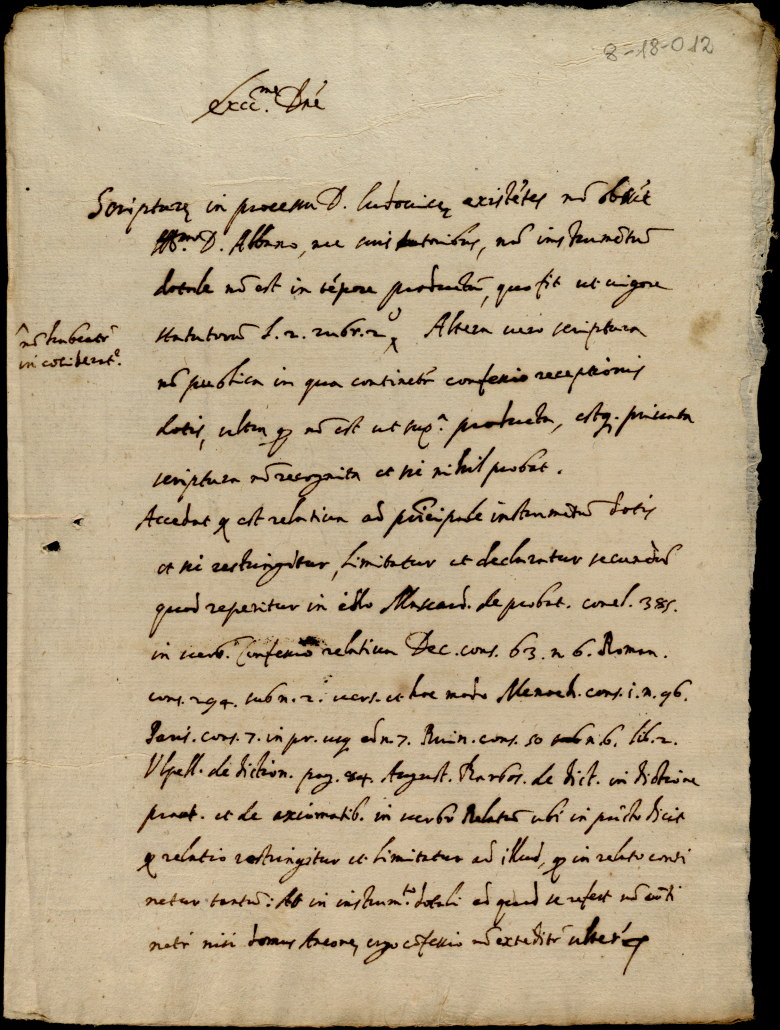 8-18-012
Excc.me Dne
Scripturę in processu D. Ludovicę existētes nō obstāt
Ill.mo D. Albano, nec suis fratribus, nō instrumētū
dotale nō est in tēpore productū, quo fit ut vigore
statutorū l. 2. rubr. 2
nō habeatr
in cōsiderat.e
Altera vero scriptura
nō publica in qua continetr confessio receptionis
dotis, ultra q nō est ut supr.a producta, estq. privata
scriptura nō recognita et sic nihil probat.
Accedat q est relativa ad prīcipale instrumētū dotis
et sic restringitur, limitatur et declaratur secundū
quod reperitur in illo Mascard. de probat. concl. 385.
in verb. Confessio relativa Dec. cons. 63. n. 6. Roman.
cons. 294. sub n. 2. vers. et hoc modo Menoch. cons. 1. n. 96.
Paris. cons. 7. in pr. usq ad n. 7. Ruin. cons. 50 sub n. 6. lib. 2.
Vspell. de diction. pag. 84. August. Barbos. de dict. in dictione
praet. et de axiomatib. in verbo Relatū ubi in pūcto dicit
q relatio restringitur et limitatur ad illud, q in relato conti
netur tantū: At in instrum.to dotali ad quod se refert nō cōti
netr nisi domus Anconę, ergo cōfessio nō extēditr ulteri9